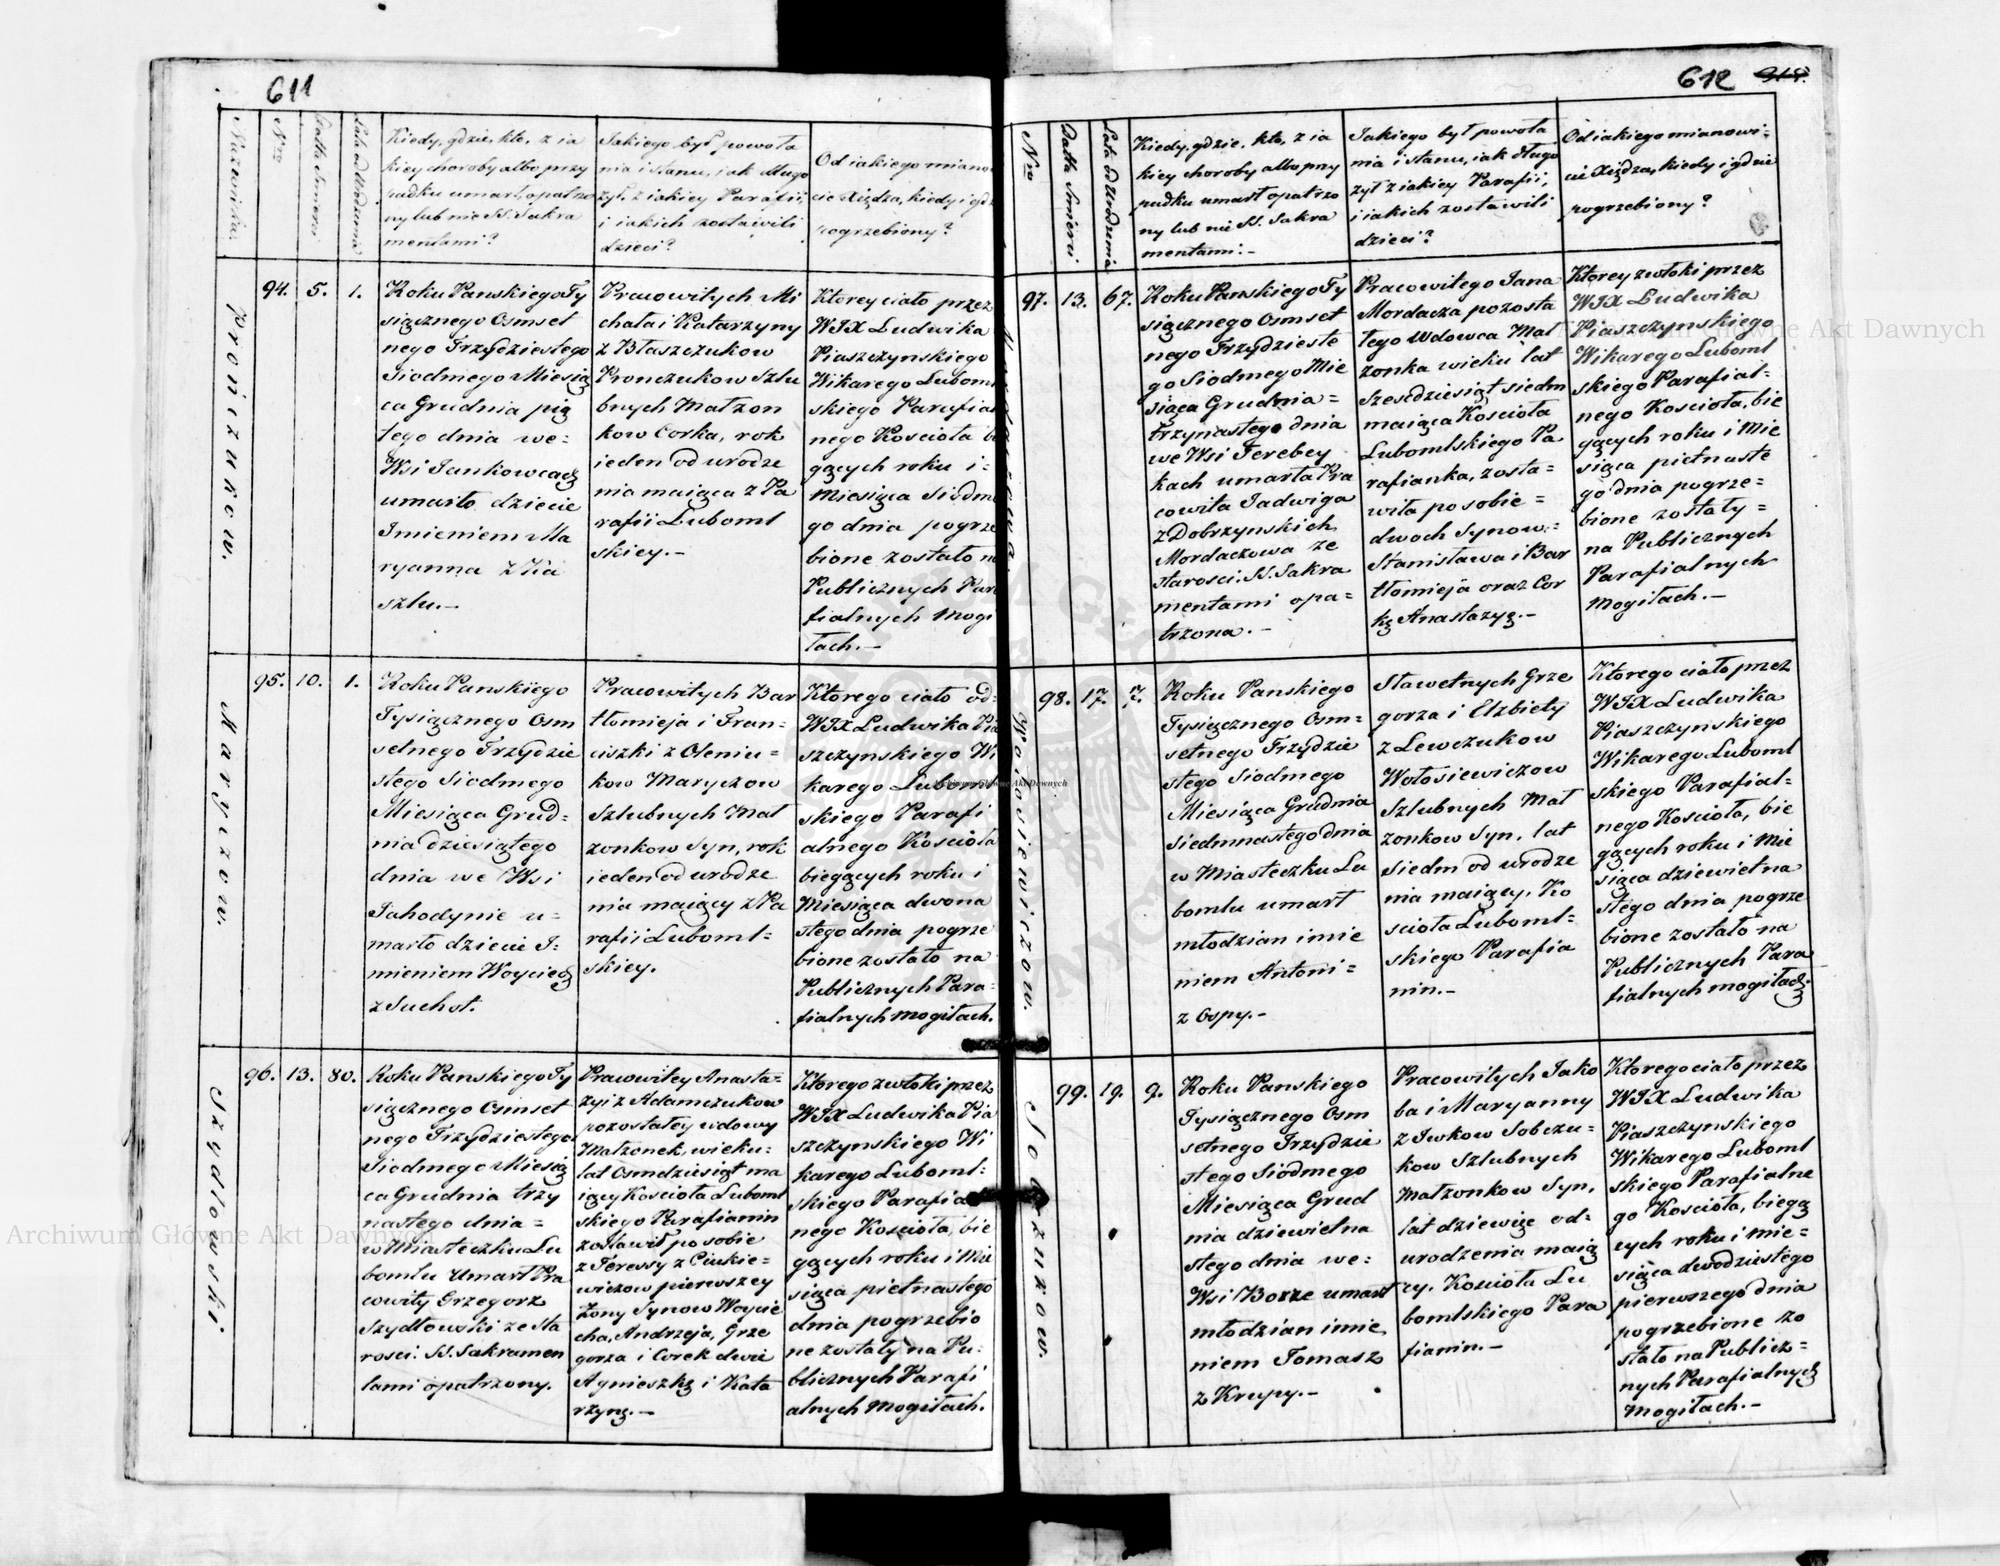 611
Nazwiska.
Nro
Datta Smierci
Lata od Urodzenia
Kiedy, gdzie, kto, z ia
kiey choroby albo przy
padku umarł, opatrzo
ny lub nie SS. Sakra
mentami?
Jakiego był powoła
nia i stanu, iak długo
żył, z iakiey Parafii,
i iakich zostawili
dzieci?
Od iakiego miano
cie Xiędza, kiedy i gdz
pogrzebiony?
Pronczukow.
94.
5.
1.
Roku Panskiego Ty
siącznego Osmset
nego Trzydziestego
Siodmego Miesią
ca Grudnia pią
tego dnia we=
Wsi Jankowcach
umarło dziecie
Imieniem Ma
ryanna z Ka
szlu.—
Pracowitych Mi
chała i Katarzyny
z Błaszczukow
Pronczukow Szlu
bnych Małzon
kow Corka, rok
ieden od urodze
nia maiąca z Pa
rafii Luboml
skiey.—
Ktorey ciało przez
WJX Ludwika
Piaszczynskiego
Wikarego Luboml
skiego Parafial
nego Kościoła bie
gących roku i=
Miesiąca Siodme
go dnia pogrze
bione zostało na
Publicznych Para
fialnych Mogi
łach.—
Maryczow.
95.
10.
1.
Roku Panskiego
Tysiącznego Osm
setnego Trzydzie
stego Siodmego
Miesiąca Grud=
nia dziesiątego
dnia we Wsi
Jahodynie u=
marło dziecie I=
mieniem Woyciech
z Suchot.
Pracowitych Bar
tłomieja i Fran=
ciszki z Oleniu=
kow Maryczow
Szlubnych Mał
zonkow Syn, rok
ieden od urodze
nia maiący z Pa
rafii Luboml=
skiey.
Ktorego ciało od=
WJX Ludwika Pia
szczynskiego Wi
karego Luboml
skiego Parafi
alnego Kościoła
biegących roku i
Miesiąca dwona
stego dnia pogrze
bione zostało na
Publicznych Para=
fialnych mogiłach.
Szydłowski
96.
13.
80.
Roku Panskiego Ty
siącznego Osmset
nego Trzydziestego
Siodmego Miesią
ca Grudnia trzy
nastego dnia=
w Miasteczku Lu
bomlu Umarł Pra
cowity Grzegorz
Szydłowski ze sta
rosci. SS. Sakramen
tami opatrzony.
Pracowitey Anasta=
zyi z Adamczukow
pozostałey wdowy
Małzonek, wieku=
lat Osmdziesiąt ma
iący Kościoła Luboml
skiego Parafianin
zostawił po sobie
z Teressy z Ciukie=
wiczow pierwszey
żony Synow Woycie
cha, Andrzeja, Grze
gorza i Corek dwie
Agnieszkę i Kata
rzynę.—
Ktorego zwłoki przez
WJX Ludwika Pia
szczynskiego Wi
karego Luboml=
skiego Parafial
nego Kościoła, bie
gących roku i Mie
siąca pietnastego
dnia pogrzebio
ne zostały na Pu=
blicznych Parafi
alnych Mogiłach.
612
Nro
Datta Smierci
Lata od Urodzenia
Kiedy, gdzie, kto, z ia
kiey choroby albo przy
padku umarł opatrzo
ny lub nie SS. Sakra
mentami.—
Jakiego był powoła
nia i stanu, iak długo
żył z iakiey Parafii,
i iakich zostawili
dzieci?
Od iakiego mianowi=
cie Xiędza, kiedy i gdzie
pogrzebiony?
97.
13.
67.
Roku Panskiego Ty
siącznego Osmset
nego Trzydzieste
go Siodmego Mie
siąca Grudnia=
trzynastego dnia
we Wsi Terebey
kach umarła Pra
cowita Jadwiga
z Dobrzynskich
Mordaczowa ze
starosci. SS. Sakra
mentami opa=
trzona.—
Pracowitego Jana
Mordacza pozosta
łego Wdowca Mał
zonka wieku lat
Szescdziesiąt siedm
maiąca Kościoła
Lubomlskiego Pa
rafianka, zosta=
wiła po sobie=
dwoch Synow=
Stanisława i Bar
tłomieja oraz Cor
kę Anastazyę.—
Ktorey zwłoki przez
WJX Ludwika
Piaszczynskiego
Wikarego Luboml
skiego Parafial=
nego Kościoła, bie
gących roku i Mie
siąca pietnaste
go dnia pogrze=
bione zostały=
na Publicznych
Parafialnych
Mogiłach.—
Wołosiewiczow.
98.
17.
7.
Roku Panskiego
Tysiącznego Osm=
setnego Trzydzie
stego Siodmego
Miesiąca Grudnia
siedmnastego dnia
w Miasteczku Lu
bomlu umarł
młodzian imie
niem Antoni=
z Ospy.—
Sławetnych Grze
gorza i Elzbiety
z Lewczukow
Wołosiewiczow
Szlubnych Mał
zonkow Syn, lat
siedm od urodze
nia maiący, Ko
ścioła Luboml=
skiego Parafia
nin.—
Ktorego ciało przez
WJX Ludwika
Piaszczynskiego
Wikarego Luboml
skiego Parafial=
nego Kościoła, bie
gących roku i Mie
siąca dziewietna
stego dnia pogrze
bione zostało na
Publicznych Para
fialnych mogiłach.
Sobczukow.
99.
19.
9.
Roku Panskiego
Tysiącznego Osm
setnego Trzydzie
stego Siodmego
Miesiąca Grud
nia dziewietna
stego dnia we=
Wsi Borze umarł
młodzian imie
niem Tomasz
z Krupy.—
Pracowitych Jako
ba i Maryanny
z Iwkow Sobczu=
kow Szlubnych
Małzonkow Syn,
lat dziewięc od=
urodzenia maią
cy, Kościoła Lu
bomlskiego Para
fianin.—
Ktorego ciało przez
WJX Ludwika
Piaszczynskiego
Wikarego Luboml
skiego Parafialne
go Kościoła, biegą
cych roku i mie=
siąca dwodziestego
pierwszego dnia
pogrzebione zo
stało na Publicz=
nych Parafialnych
Mogiłach.—
Archiwum Główne Akt Dawnych
Główne Akt Dawnych
Archiwum Główne Akt Dawnych